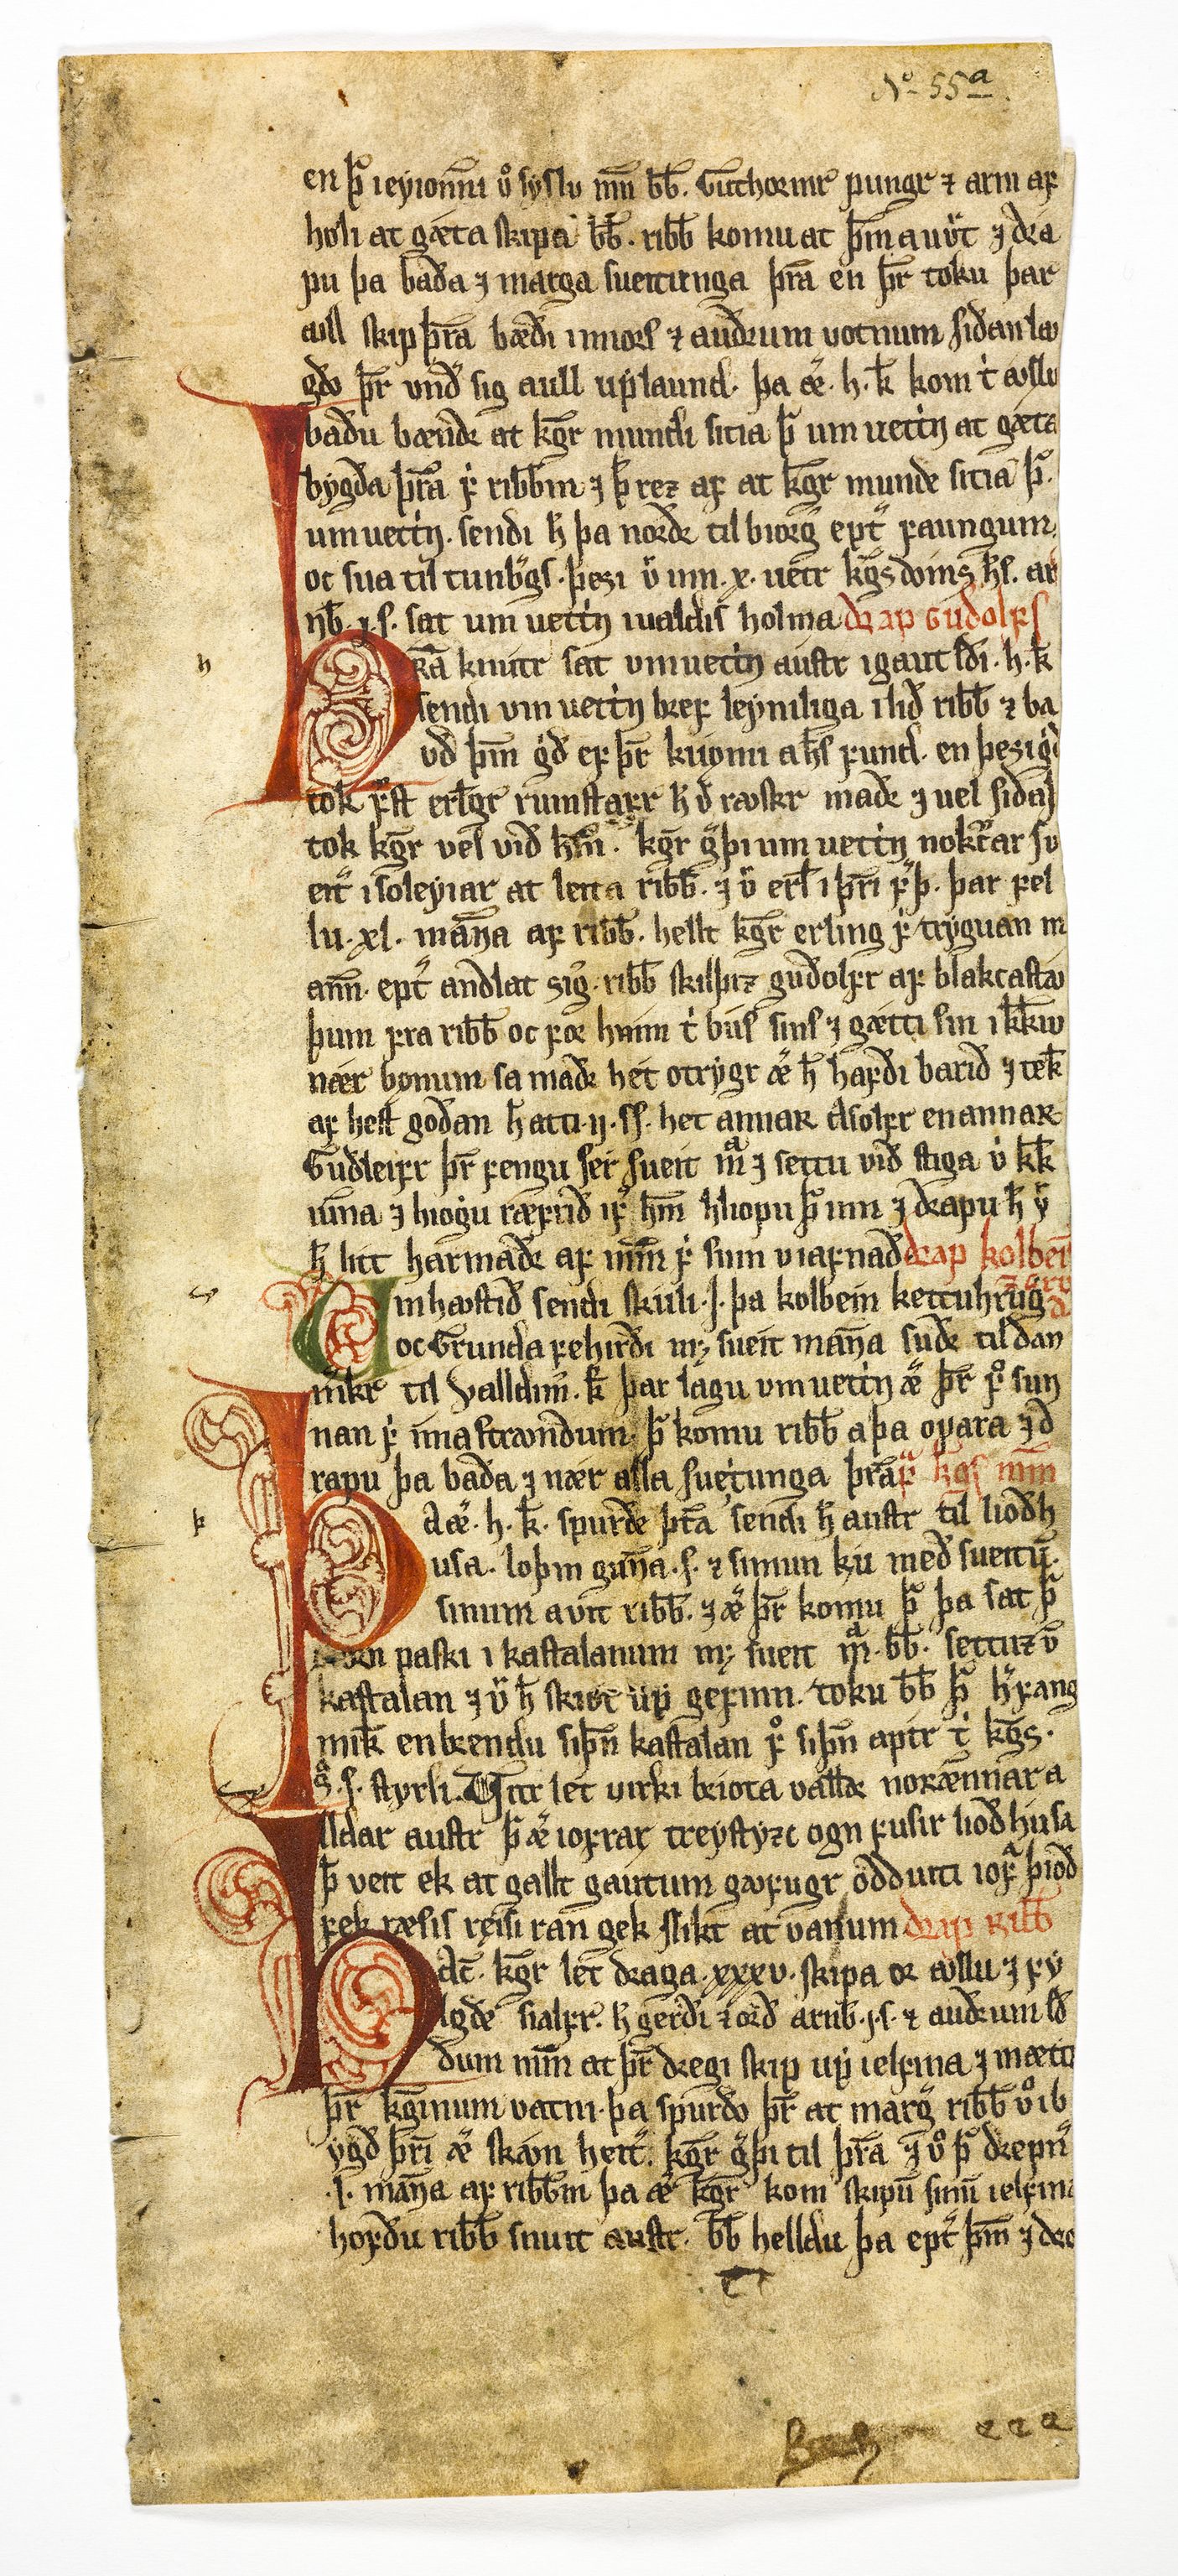 No 55a
en þͣ i eyionnı uͦ syslu mn̅ bb̅. Guthormr pungr ⁊ arni af
holi at gæta skipa bb̅. ribb̅ komu at þm̅ a uv̈t ⁊ dra
pu þa bada ⁊ marga sueitunga þra̅ en þr̅ toku þar
aull skip þra̅ bædi i miors ⁊ audrum votnum sidan lav
gdo þr̅ vnd͛ sig aull uplaund. þa æ͛. h. k̅ kom t́ ꜹslu
badu bændr at kgr̅ mundi sitia þͣ um uettͥn at gæta
bygda þra̅ f́ ribbm̅ ⁊ þ̅ rez af at kgr̅ munde sitia þͣ.
um uettͥn. sendi h̅ þa nordr til biorg͛ ept͛ faungum.
oc sua til tunb͛gs. þessi v͛ inn .x. uetr kgs̅doms hs̅. ar
nb̅ .j.s. sat um uettͥn i ualdis holma drap Gudolfs
Hra̅ knutr sat um uettͥn austr i gautldi̅. h. k̅
sendi um uettͥn bref leyniliga i lid ribb̅ ⁊ ba
ud þm̅ g͛d ef þr̅ kuomi a hs̅ fund. en þessi g͛d
tok fͦst erlgr̅ rumstafr h̅ v͛ rꜹskr madr ⁊ uel sidadͬ
tok kgr̅ vel vid hm̅. kgr̅ g͛þi um uettͥn nokrar su
eit͛ i soleyiar at leita ribb̅. ⁊ v͛ erl̅ i þri̅ f͛þ. þar fel
lu .xl. man̅a af ribb̅. hellt kgr̅ erling f́ tryguan m
ann̅. ept͛ andlat sig͛. ribb̅ skilþiz gudolfr af blakcastꜹ
þum fra ribb̅ oc fór heim t́ bús sins ⁊ gætti sin i kk̅iu
nær bonum sa madr hét otrygr æ͛ h̅ hafdi barid ⁊ tek̅
af hest godan h̅ atti .ij. ss. het annar Asolfr en annar
Gudleifr þr̅ fengu ser sueit mͣ ⁊ settu vid stiga v́ kk̅
iun̅a ⁊ hiogu ræfrid if͛ hm̅ hliopu þͣ inn ⁊ drapu h̅ v͛
h̅ litt harmadr af mm̅ f́ sinn viafnad drap kolbei̅
Um hꜹstid sendi skuli .j. þa kolbein kettuhrüg
oc Grunda fehirdi m; sueit man̅a sudr til dan
mkr til Valldim̅. k̅ þar lagu um uettͥn æ͛ þr̅ fͦ sun
nan f́ inna strꜹndum. þͣ komu ribb̅ a þa ovara ⁊ d
rapu þa bada ⁊ nær alla suetunga þra̅ fͣ kgs̅ mm̅
Þa æ͛. h. k̅. spurde þta̅ sendi h̅ austr til liodh
usa. loþin gun̅a. s. ⁊ simun ku med sueitu̅
sinum a vit ribb̅. ⁊ æ͛ þr̅ komu þͣ þa sat þͣ
paski i kastalanum m; sueit mͣ. bb̅. settuz v̅
kastalan ⁊ v͛ h̅ skiott up gefinn. toku bb̅ þͣ h͛fang
mik̅ en brendu siþn̅ kastalan fͦ siþn̅ aptr t́ kgs̅.
s. styrli. Vitr let uirki briota valldr norænnar a
lldar austr þ̅ æ͛ iofrar treystyzc ogn fusir liodhusa
þ̅ veit ek at gallt gautum gꜹfugr oddviti iofͣ þiod
fek ræsis reisi ran gek slikt at vanum drap Ribb̅
Hac̅. kgr̅ let draga .xxxv. skipa or ꜹslu ⁊ fy
lgde sialfr. h̅ gerdi ⁊ ord arnb̅ .j.s. ⁊ audrum ld̅
dum mm̅ at þr̅ dregi skip up i elfina ⁊ mætti
þr̅ kg̅inum vatni. þa spurdo þr̅ at marg͛ ribb̅ vͦ i b
ygd þri̅ æ͛ skaun heit͛. kgr̅ g͛þi til þra̅ ⁊ vͦ þͣ drepn͛
.l. man̅a af ribbm̅ þa æ͛ kgr̅ kom skipu̅ sinu̅ i elfina
hofdu ribb̅ snuit austr. bb̅ helldu þa ept͛ þm̅ ⁊ dra